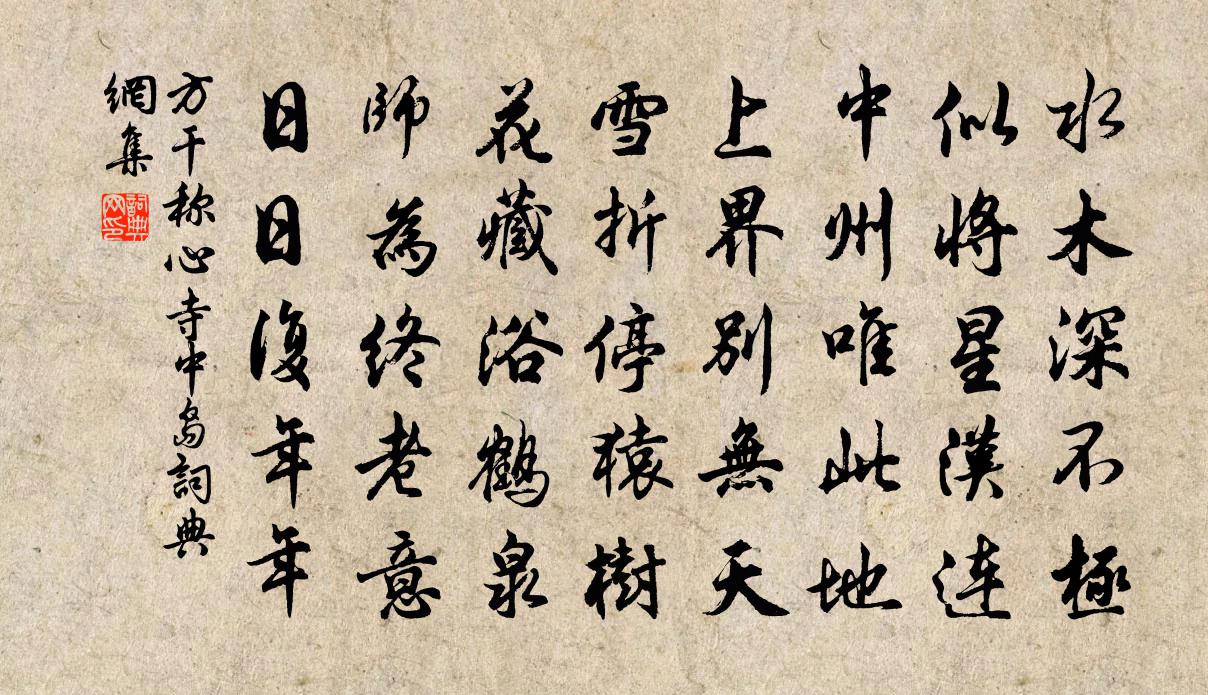 水木深不極
似將星漢连
中州唯此地
上界別無天
雪折停猿樹
花藏浴鶴泉
師為終老意
日日復年年
方干称心寺中島詞典
網集
詞典
网印